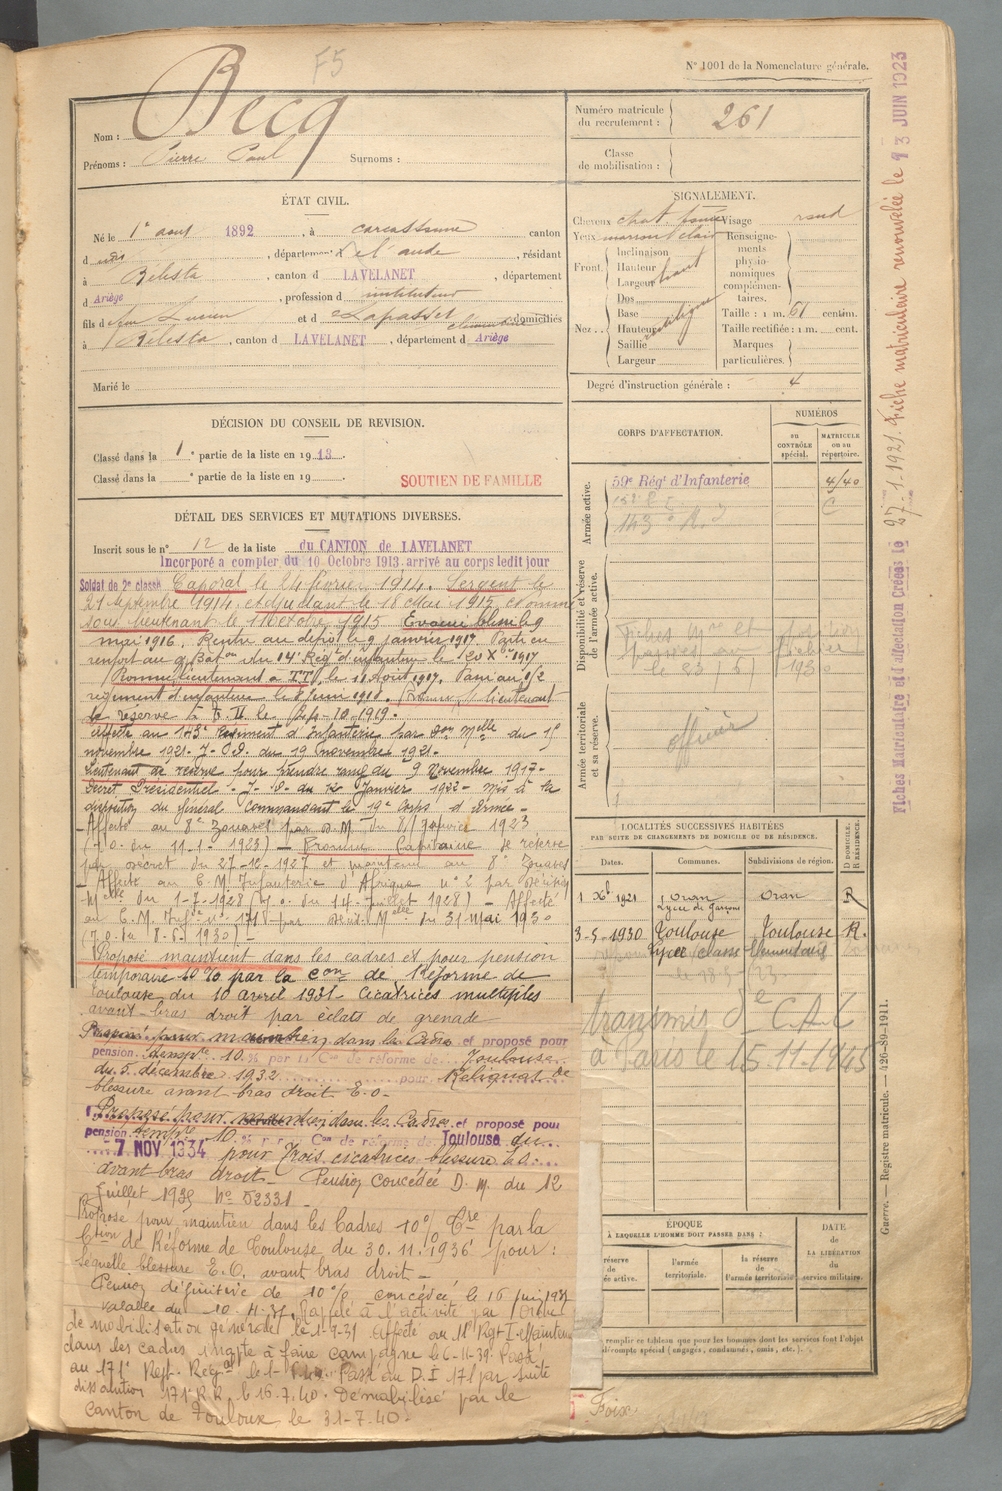 F5
N° 1001 de la Nomenclature générale.
Nom : Becq
Prénoms : Pierre Paul Surnoms :
Numéro matricule du recrutement : 261
Classe de mobilisation :
ÉTAT CIVIL.
Né le 1er aout 1892, à Carcassonne canton
d dudit, département de l'aude, résidant
à Bélesta, canton d LAVELANET, département
d Ariège, profession d instituteur
fils d Jean Lucien et d Lapasset Clémentine domiciliés
à Bélesta, canton d LAVELANET, département d Ariège
Marié le
SIGNALEMENT.
Cheveux chat. foncé Visage rond
Yeux marron clair Renseignements physionomiques complémentaires.
Front. Inclinaison
Hauteur haut
Largeur
Nez... Dos rectiligne
Base
Hauteur
Saillie
Largeur
Taille : 1 m. 61 centim.
Taille rectifiée : 1 m. cent.
Marques particulières.
Degré d'instruction générale : 4
DÉCISION DU CONSEIL DE REVISION.
Classé dans la 1e partie de la liste en 1913.
Classé dans la e partie de la liste en 19
SOUTIEN DE FAMILLE
DÉTAIL DES SERVICES ET MUTATIONS DIVERSES.
Inscrit sous le n° 12 de la liste du CANTON de LAVELANET
Incorporé à compter du 10 Octobre 1913, arrivé au corps ledit jour
Soldat de 2e classe Caporal le 24 février 1914. Sergent le
21 septembre 1914. Adjudant le 18 Mai 1915. Nommé
sous lieutenant le 11 Octobre 1915. Evacué blessé le 9
mai 1916. Rentré au dépôt le 9 janvier 1917. Parti en
renfort au 9e Baton du 14e Régt d'infanterie le 20 Xbre 1917
Nommé lieutenant à T.T. le 11 Aout 1917. Passé au
régiment d'infanterie le 8 Juin 1918. Promu lieutenant
de réserve à T. D. le 10-1919.
Affecté au 143e Régiment d'Infanterie par don Melle du 15
novembre 1921. J.O.D. du 19 novembre 1921.
Lieutenant de réserve pour prendre rang du 9 Novembre 1917.
Décret Présidentiel. J.O. du 12 Janvier 1922. Mis à la
disposition du Général Commandant le 19e Corps d'Armée.
Affecté au 8e Zouaves par D.M. du 8 janvier 1923
(J.O. du 11-1-1923) Promu Capitaine de réserve
par décret du 27-12-1927 et maintenu au 8e Zouaves
Affecté au C.M. Infanterie d'Afrique n° 2 par Décision
Melle du 1-7-1928 (J.O. du 14 juillet 1928) Affecté
au C.M. Infie n° 171 par Décis. Melle du 31 mai 1930
(J.O. du 8-6-1930)
Proposé maintient dans les cadres et pour pension
temporaire 10% par la Con de Réforme de
Toulouse du 10 avril 1931. Cicatrices multiples
avant-bras droit par éclats de grenade
Proposé pour maintien dans les Cadres et proposé pour
pension tempre 10 % par la Con de réforme de Toulouse
du 5 décembre 1932 pour Reliquat de
blessure avant bras droit E.O.
Proposé pour maintien dans les Cadres et proposé pour
pension tempre 10 % par Con de réforme de Toulouse du
7 NOV 1934 pour Trois cicatrices blessure
avant bras droit. Pension concédée D.M. du 12
Juillet 1935 N° 52331
Proposé pour maintien dans les Cadres 10% Tre par la
Ction de Réforme de Toulouse du 30.11.1936 pour :
Séquelle blessure E.O. avant bras droit
Pension définitive de 10% concédée le 16 juin 1937
valable du 10.11.37. Rappelé à l'activité par Ordre
de mobilisation générale le 1-9-39 Affecté au Régt I. Maintenu
dans les cadres inapte à faire campagne le 6-11-39. Passé
au 171e Regt. Régal le Passé au D.I 171 par suite
dissolution 171e R.R. le 16.7.40. Démobilisé par le
canton de Toulouse le 31-7-40.
CORPS D'AFFECTATION.
NUMÉROS
au CONTRÔLE spécial.
MATRICULE ou au répertoire.
Armée active.
59e Régt d'Infanterie 4140
143e R.I
Disponibilité et réserve de l'armée active.
Armée territoriale et sa réserve.
officier
LOCALITÉS SUCCESSIVES HABITÉES
PAR SUITE DE CHANGEMENTS DE DOMICILE OU DE RÉSIDENCE.
D DOMICILE. R RÉSIDENCE.
Dates. Communes. Subdivisions de région.
1 Xb 1921 Oran Lycée de Garçons Oran R
3-5-1930 Toulouse Toulouse R.
Lycée classe élémentaire
transmis de C.A.C
à Paris le 15.11.1945
ÉPOQUE
À LAQUELLE L'HOMME DOIT PASSER DANS :
réserve de active.
l'armée territoriale.
la réserve de l'armée territoriale
DATE de LA LIBÉRATION du service militaire.
remplir ce tableau que pour les hommes dont les services font l'objet
décompte spécial (engagés, condamnés, omis, etc.).
Foix
Guerre. — Registre matricule. — 426-39-1911.
Fiches Matriculaire et d'affectation Créées le 27-1-1921. Fiche matriculaire renouvelée le 13 JUIN 1923